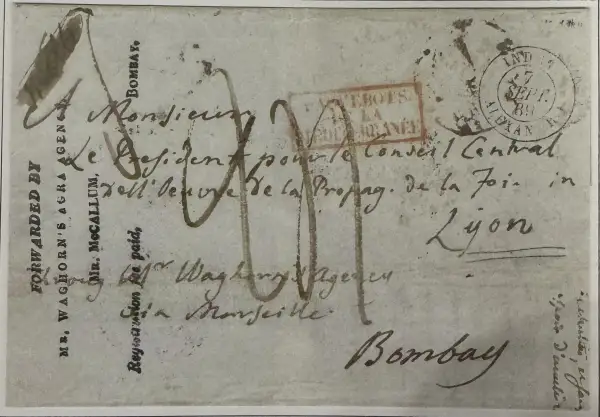 FORWARDED BY
MR. WAGHORN'S AGRA AGENCY
MR. McCALLUM,
BOMBAY.
Registration fee paid,
PAQUEBOTS
DE LA
MÉDITERRANÉE
INDES
7
SEPT.
ALEXANDR
A Monsieur
Le President pour le Conseil Central
dell'Oeuvre de la Propag. de la Foi. in
Lyon
Mr Waghorn's Agency
via Marseille.
Bombay